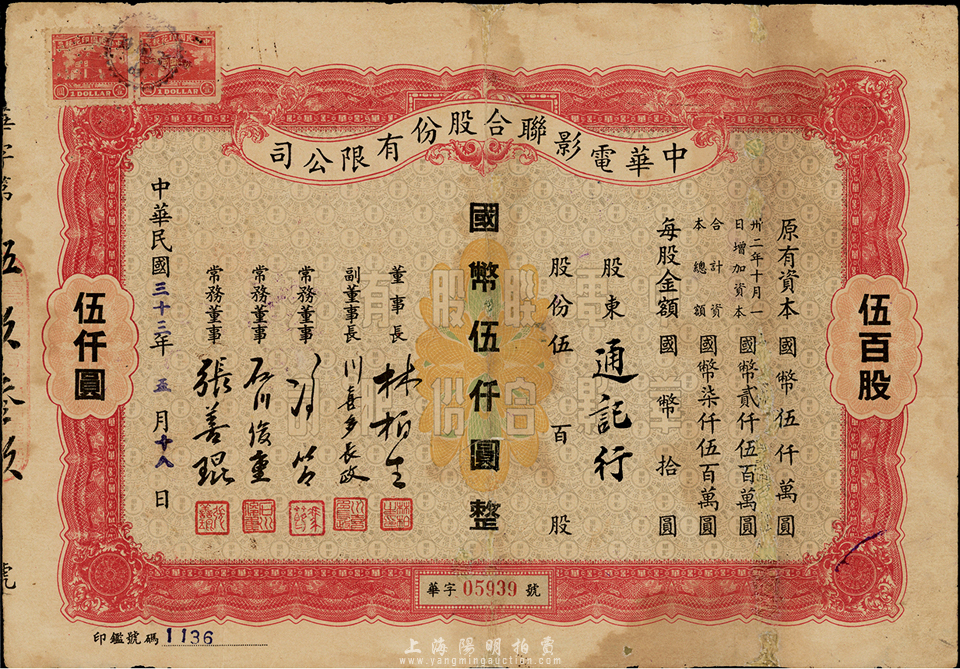 中華電影聯合股份有限公司
原有資本國幣伍仟萬圓
卅二年十月一日增加資本國幣貳仟伍百萬圓
合計資本總額國幣柒仟伍百萬圓
每股金額國幣拾圓
股東通記行
股份伍百股
國幣伍仟圓整
董事長林柏生
副董事長川喜多長政
常務董事馮節
常務董事石川俊重
常務董事張善琨
中華民國三十三年五月十八日
伍百股
伍仟圓
華字05939號
印鑑號碼1136
1 DOLLAR
1 DOLLAR
上海陽明拍賣
www.yangmingauction.com